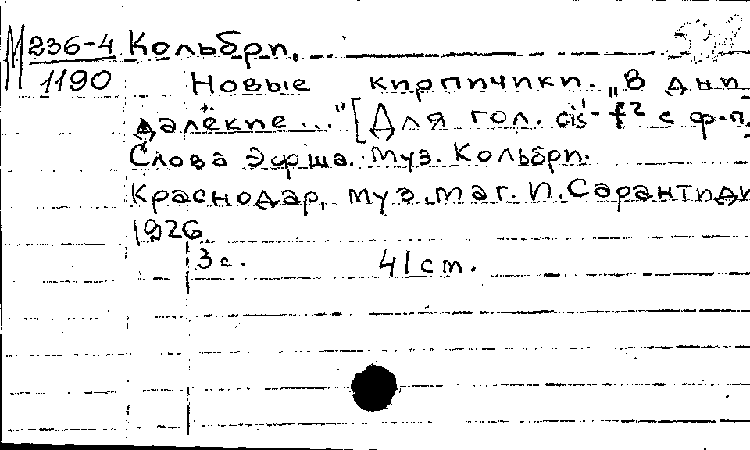 М 236-4 Кольбри.
1190 Новые кирпичики. „В дни
далёкие..." [Для гол. cis¹-f² с ф-п.
Слова Эфша. Муз. Кольбри.
Краснодар, муз. маг. И. Сарантиди
1926
3 с. 41 см.